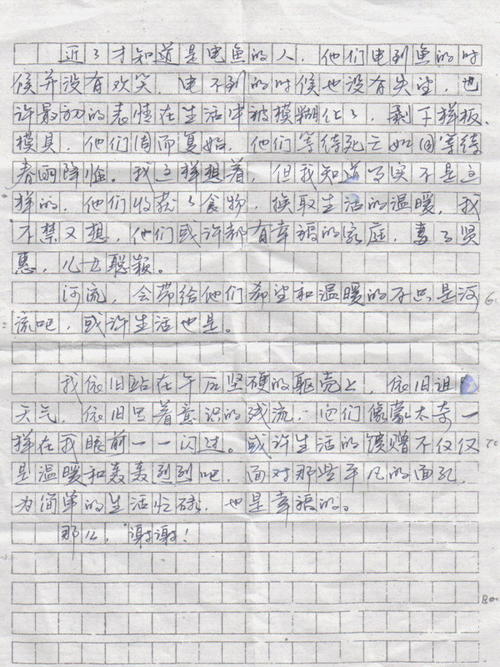 近了才知道是电鱼的人，他们电到鱼的时
候并没有欢笑，电不到的时候也没有失望，也
许最初的表情在生活中被模糊化了，剩下样板、
模具，他们周而复始，他们等待死亡如同等待
春雨降临。我这样想着，但我知道写实不是这
样的，他们收获了食物，换取生活的温暖，我
不禁又想，他们或许都有幸福的家庭，妻子贤
惠，儿女聪颖。
河流，会带给他们希望和温暖的不只是河
流吧，或许生活也是。
我依旧站在午后坚硬的躯壳上，依旧诅
天气，依旧思着意识的残流，他们像蒙太奇一
样在我眼前一一闪过。或许生活的馈赠不仅仅
是温暖和轰轰烈烈吧，面对那些平凡的面孔，
为简单的生活忙碌，也是幸福的。
那么，谢谢！